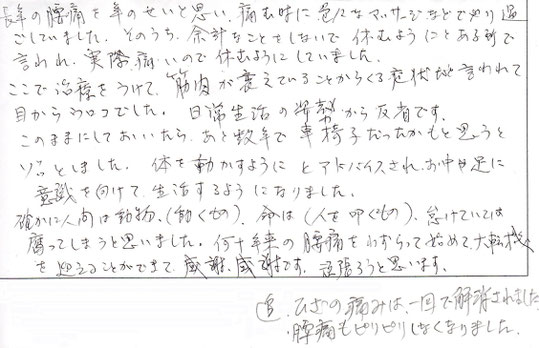 長年の腰痛を年のせいと思い、痛む時に色々なマッサージなどでやり過
ごしていました。そのうち、余計なことをしないで休むようにとある所で
言われ、実際痛いので休むようにしていました。
ここで治療をうけて、筋肉が衰えていることからくる症状だと言われて
目からウロコでした。日常生活の姿勢から反省です。
このままにしておいたら、あと数年で車椅子だったかもと思うと
ゾッとしました。体を動かすようにとアドバイスされ、お中や足に
意識を向けて生活するようになりました。
確かに人間は動物、(動くもの)、命は(人を叩くもの)、怠けていては
腐ってしまうと思いました。何十年来の腰痛をわずらって始めて、大転機
を迎えることができて、感謝、感謝です。頑張ろうと思います。
追、ひざの痛みは、一回で解消されました
・腰痛もピリピリしなくなりました。